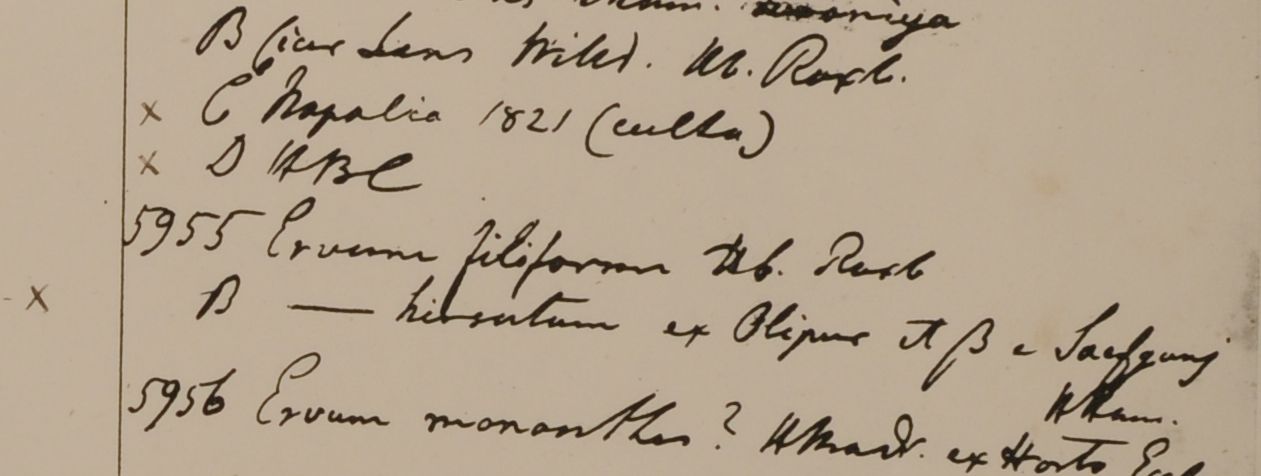 Ham. noriya
B Cicer Lens Willd. Hb. Roxb.
x C Napalia 1821 (culta)
x D HBC
5955 Ervum filiforme Hb. Roxb
x B — hirsutum ex Olipur et β e Saefgunj
HHam.
5956 Ervum monanthos? HMadr. ex Horto